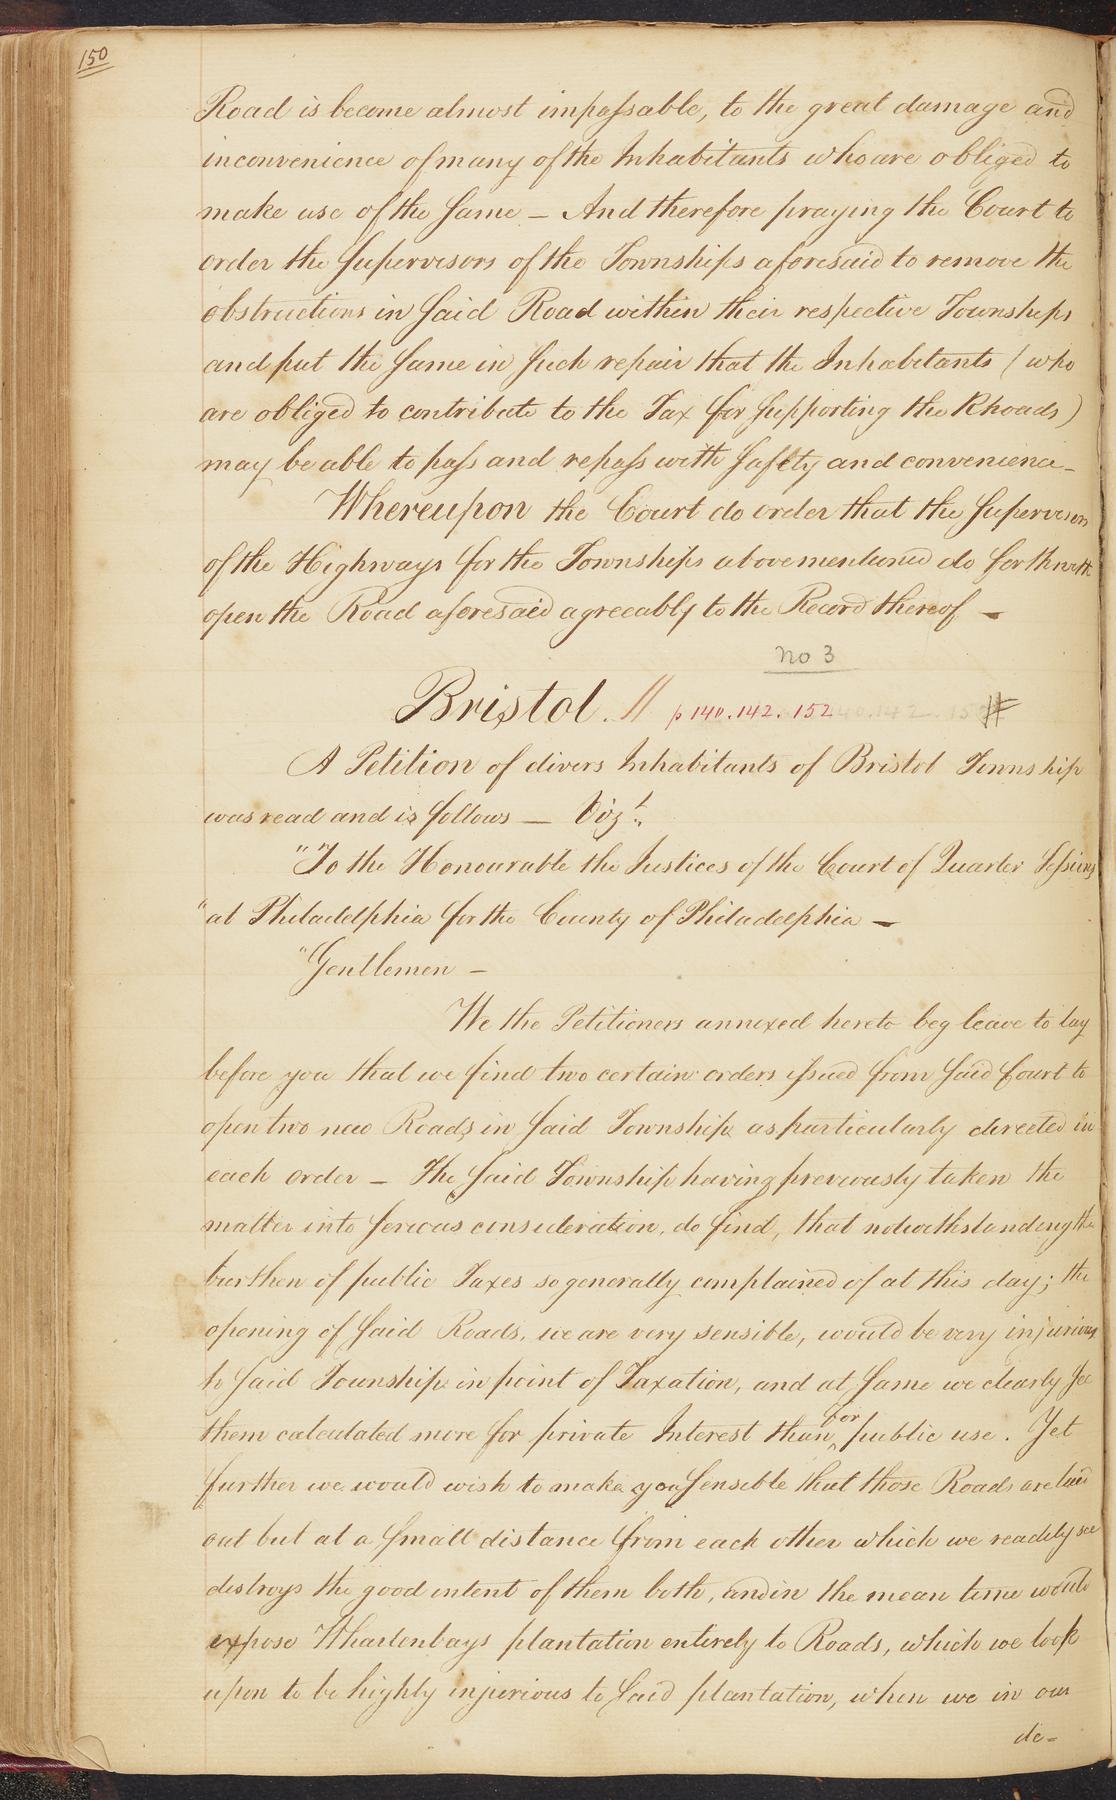 150
Road is become almost impassable, to the great damage and
inconvenience of many of the Inhabitants who are obliged to
make use of the Same – And therefore praying the Court to
order the Supervisors of the Townships aforesaid to remove the
obstructions in Said Road within their respective Townships
and put the Same in Such repair that the Inhabitants (who
are obliged to contribute to the Tax for Supporting the Rhoads)
may be able to pass and repass with Safety and convenience –
Whereupon the Court do order that the Supervisors
of the Highways for the Townships abovementioned do forthwith
open the Road aforesaid agreeably to the Record thereof –
no 3
Bristol. // p 140. 142. 152 #
A Petition of divers Inhabitants of Bristol Township
was read and is follows – Vizt.
"To the Honourable the Justices of the Court of Quarter Sessions
"at Philadelphia for the County of Philadelphia –
"Gentlemen –
We the Petitioners annexed hereto beg leave to lay
before you that we find two certain orders issued from Said Court to
open two new Roads in Said Township as particularly directed in
each order – The Said Township having previously taken the
matter into Serious consideration, do find, that notwithstanding the
burthen of public Taxes so generally complained of at this day; the
opening of Said Roads, we are very sensible, would be very injurious
to Said Township in point of Taxation, and at Same we clearly See
them calculated more for private Interest than for public use. Yet
further we would wish to make you Sensible that those Roads are laid
out but at a Small distance from each other which we readily see
destroys the good intent of them both, and in the mean time would
expose Whartenbays plantation entirely to Roads, which we look
upon to be highly injurious to Said plantation, when we in our
de=